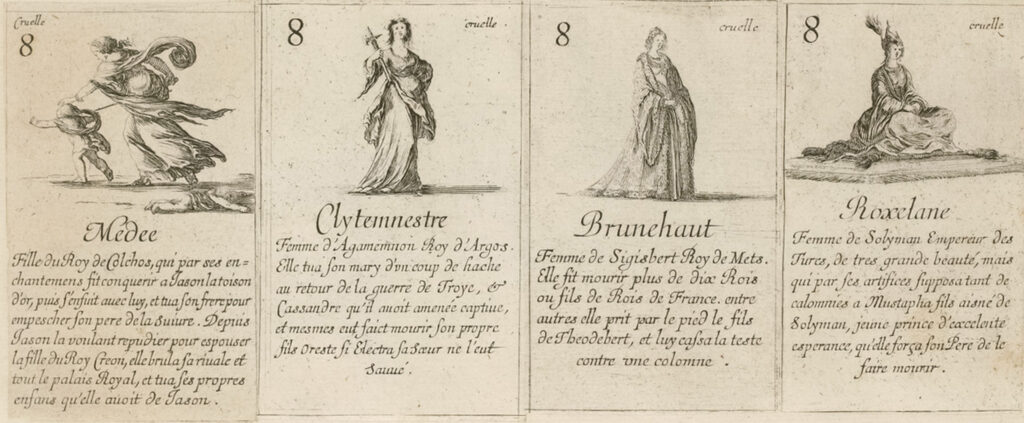 Cruelle
8
Medee
Fille du Roy de Colchos, qui par ses en=
chantemens fit conquerir a Jason la toison
d'or, puis s'enfuit avec luy, et tua son frere pour
empescher son pere de la suiure. Depuis
Jason la voulant repudier pour espouser
la fille du Roy Creon, elle brula sa riuale et
tout le palais Royal, et tua ses propres
enfans qu'elle auoit de Jason.
8
cruelle.
Clytemnestre
Femme d'Agamemnon Roy d'Argos.
Elle tua son mary d'vn coup de hache
au retour de la guerre de Troye, &
Cassandre qu'il auoit amenée captiue,
et mesmes eut faict mourir son propre
fils Oreste si Electra sa Sœur ne l'eut
Sauué.
8
cruelle
Brunehaut
Femme de Sigisbert Roy de Mets.
Elle fit mourir plus de dix Rois
ou fils de Rois de France. entre
autres elle prit par le pied le fils
de Theodebert, et luy cassa la teste
contre vne colomne.
8
cruelle
Roxelane
Femme de Solyman Empereur des
Turcs, de tres grande beauté, mais
qui par ses artifices supposa tant de
calomnies a Mustapha fils aisné de
Solyman, jeune prince d'excelente
esperance, qu'elle força son Pere de le
faire mourir.